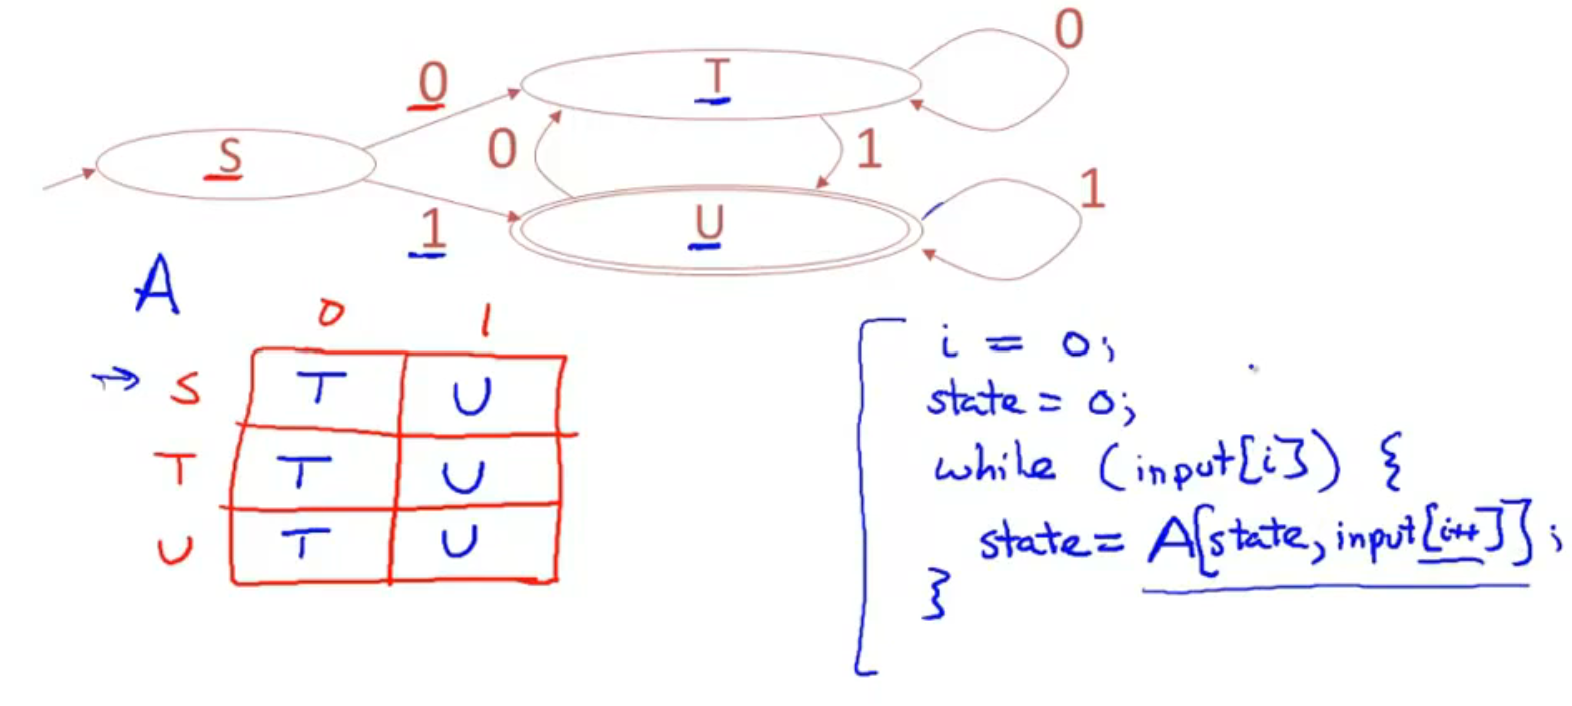 0
T
0
S
0
1
1
1
U
A
0 1
S T U
T T U
U T U
i = 0;
state = 0;
while (input[i]) {
state = A[state, input[i++]];
}